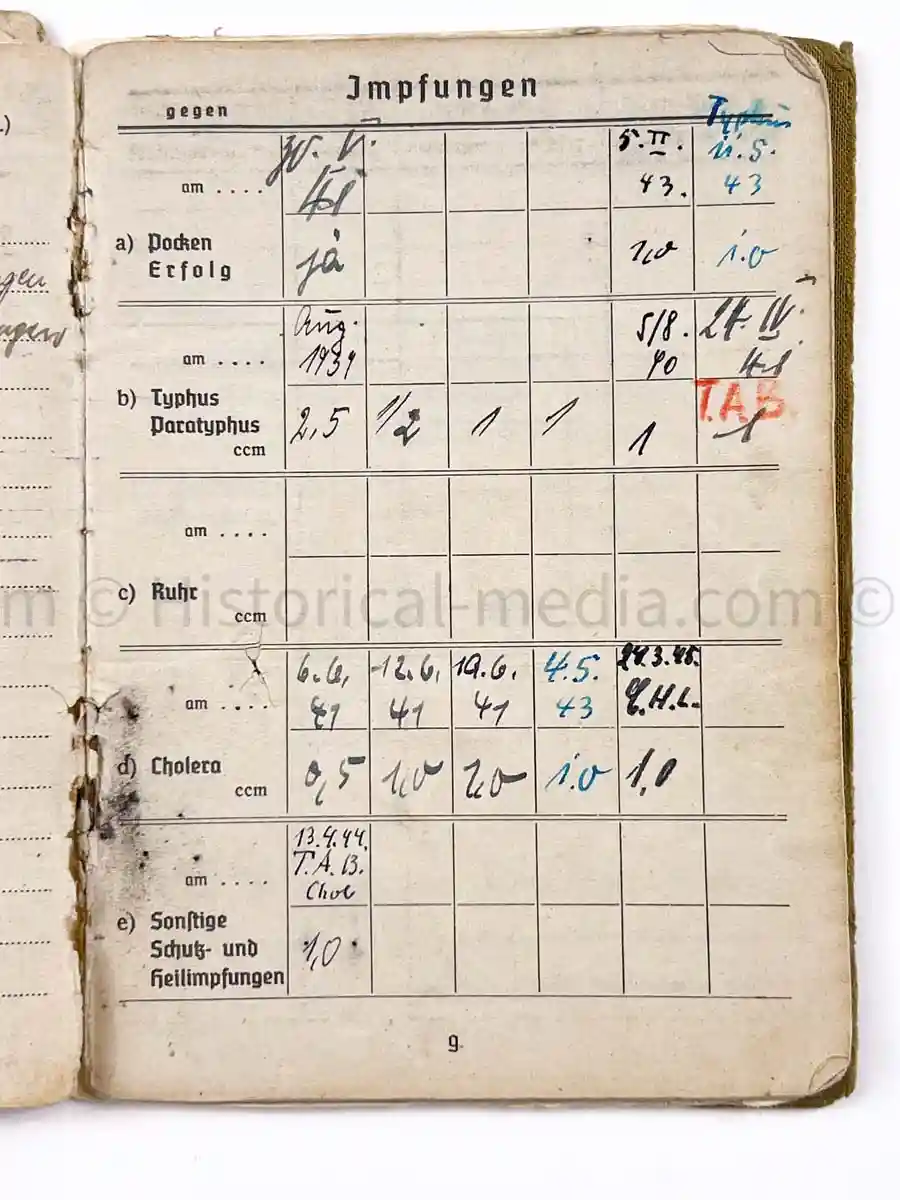 Impfungen
gegen
Typhus
30. V. 5. II. 11. 5.
am .... 41 43. 43
a) Pocken
Erfolg ja 1,0 1.0
Aug. 5/8. 24. IV.
am .... 1939 40 41
b) Typhus T.A.B.
Paratyphus 2,5 1/2 1 1 1 1
ccm
am ....
c) Ruhr
ccm
6.6. 12.6. 19.6. 4.5. 24.3.45.
am .... 41 41 41 43
d) Cholera
ccm 0,5 1,0 1,0 1.0 1,0
13.4.44.
T.A.B.
am .... Chol
e) Sonstige
Schutz- und 1,0
Heilimpfungen
9
© Historical-media.com ©